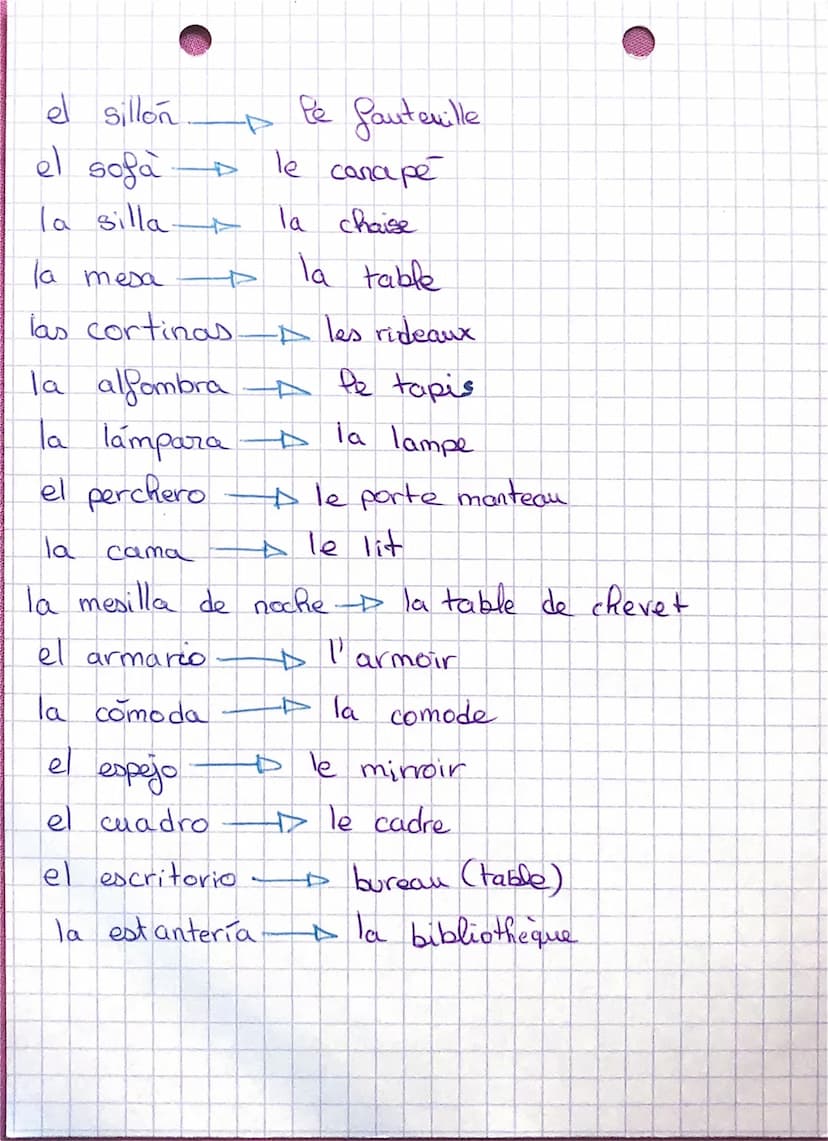 el sillón → le fauteuille
el sofà → le canapé
la silla → la chaise
la mesa → la table
las cortinas → les rideaux
la alfombra → le tapis
la lámpara → la lampe
el perchero → le porte manteau
la cama → le lit
la mesilla de noche → la table de chevet
el armario → l'armoir
la cómoda → la comode
el espejo → le mirroir
el cuadro → le cadre
el escritorio → bureau (table)
la estantería → la bibliothèque